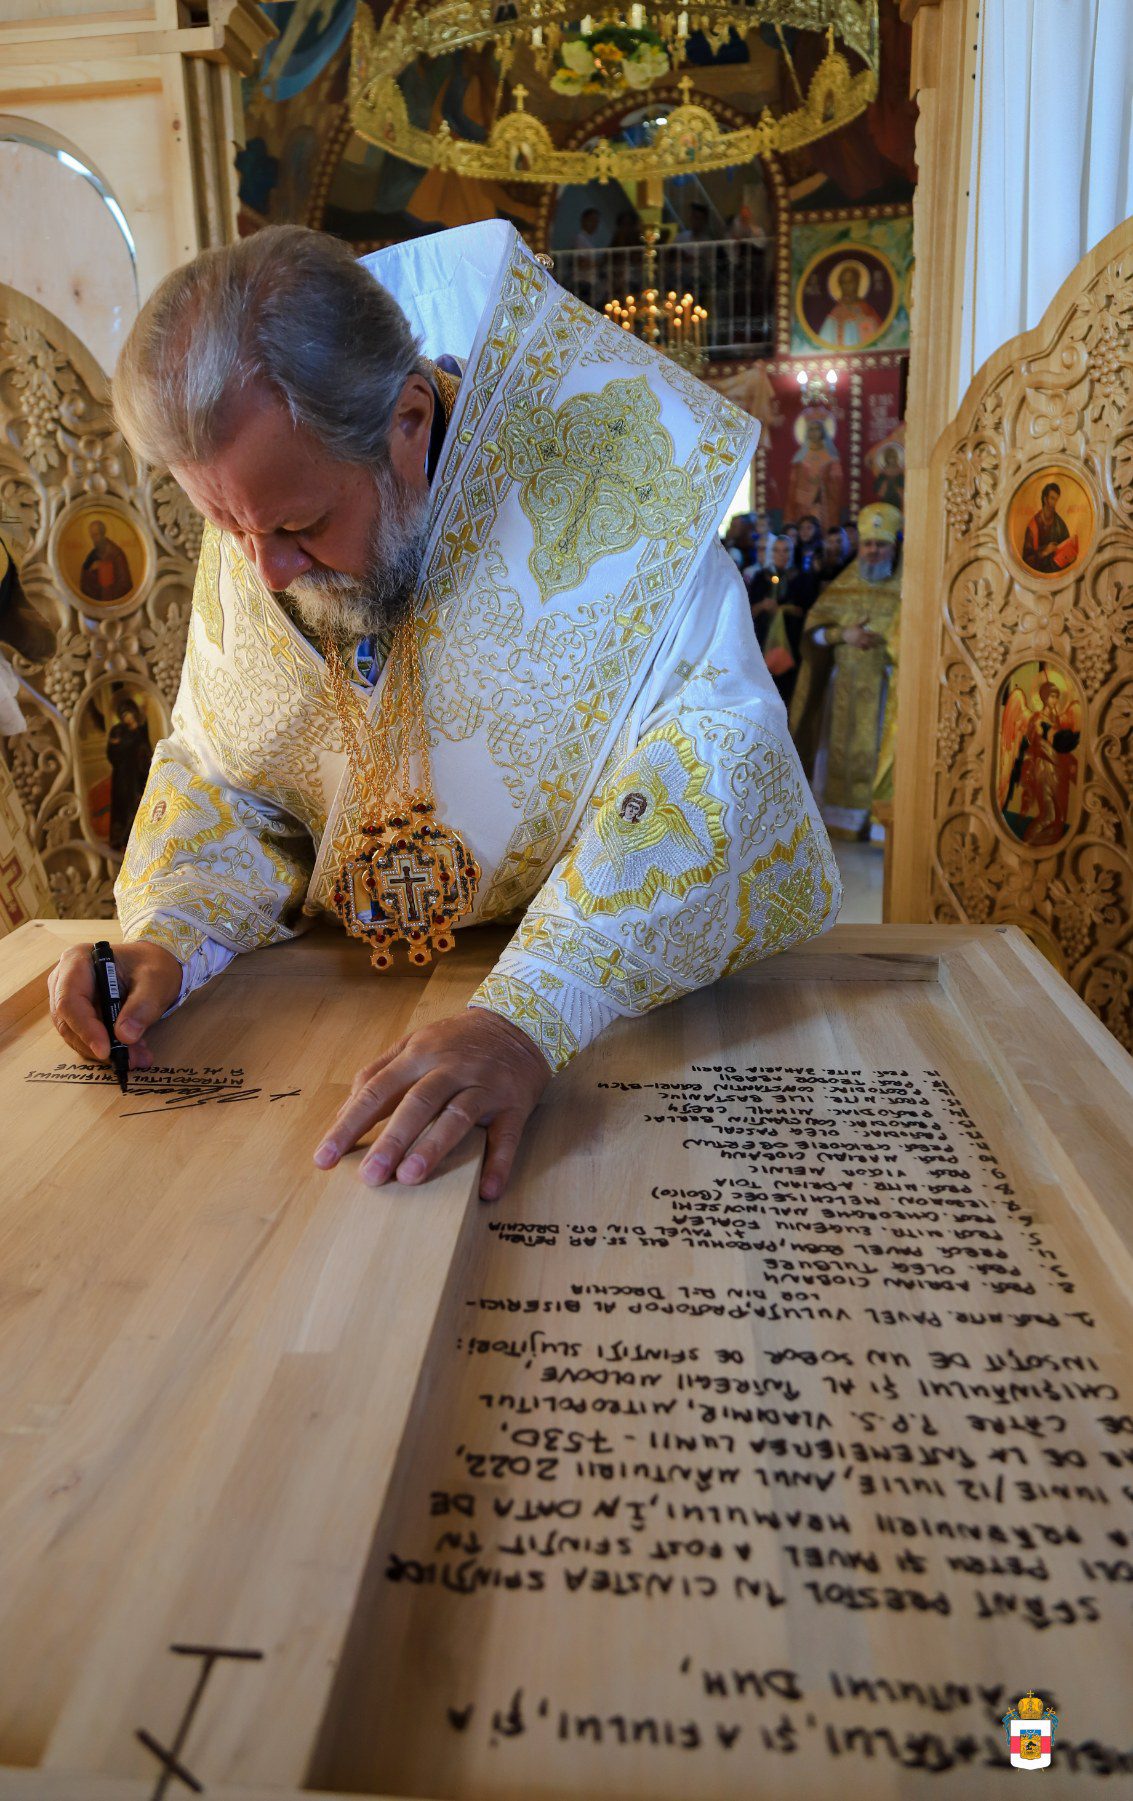 TATĂLUI, ȘI A FIULUI, ȘI A
SFÂNTULUI DUH,
SFÂNT PRESTOL ÎN CINSTEA SFINȚILOR
PETRU ȘI PAVEL A FOST SFINȚIT ÎN
PRĂZNUIRII HRAMULUI, ÎN DATA DE
IUNIE /12 IULIE, ANUL MÂNTUIRII 2022,
AR DE LA ÎNTEMEIEREA LUMII - 7530,
DE CĂTRE Î.P.S. VLADIMIR, MITROPOLITUL
CHIȘINĂULUI ȘI AL ÎNTREGII MOLDOVE,
INSOȚIT DE UN SOBOR DE SFINȚIȚI SLUJITORI:
1. PROT. MITR. PAVEL VULUȚA, PROTOPOP AL BISERICI-
LOR DIN R-L DROCHIA
2. PROT. ADRIAN CIOBANU
3. PROT. OLEG TULGURE
4. PREOT PAVEL ROBU, PAROHUL BIS. SF. AP. PETRU
ȘI PAVEL DIN OR. DROCHIA
5. PROT. MITR. EUGENIU FOALEA
6. PROT. GHEORGHE MALINOVSCHI
7. IEROMON. MELCHISEDEC (BOICO)
8. PROT. MITR. ADRIAN TOIA
9. PROT. VIGOR MELNIC
10. PROT. MARIAN CIOBANU
11. PREOT GRIGORIE OBERTUN
12. PROTODIAC. OLEG PASCAL
13. PROTODIAC. CONSTANTIN BERLAC
14. PROTODIAC. MIHAIL CREȚU
15. PROT. MITR. ILIE BASTANIUC
16. PROTODIAC. CONSTANTIN
17. PROT. TEODOR ARABII
18. PROT. MITR. ZAHARIA DARII
MITROPOLITUL CHIȘINĂULUI
ȘI AL ÎNTREGII MOLDOVE